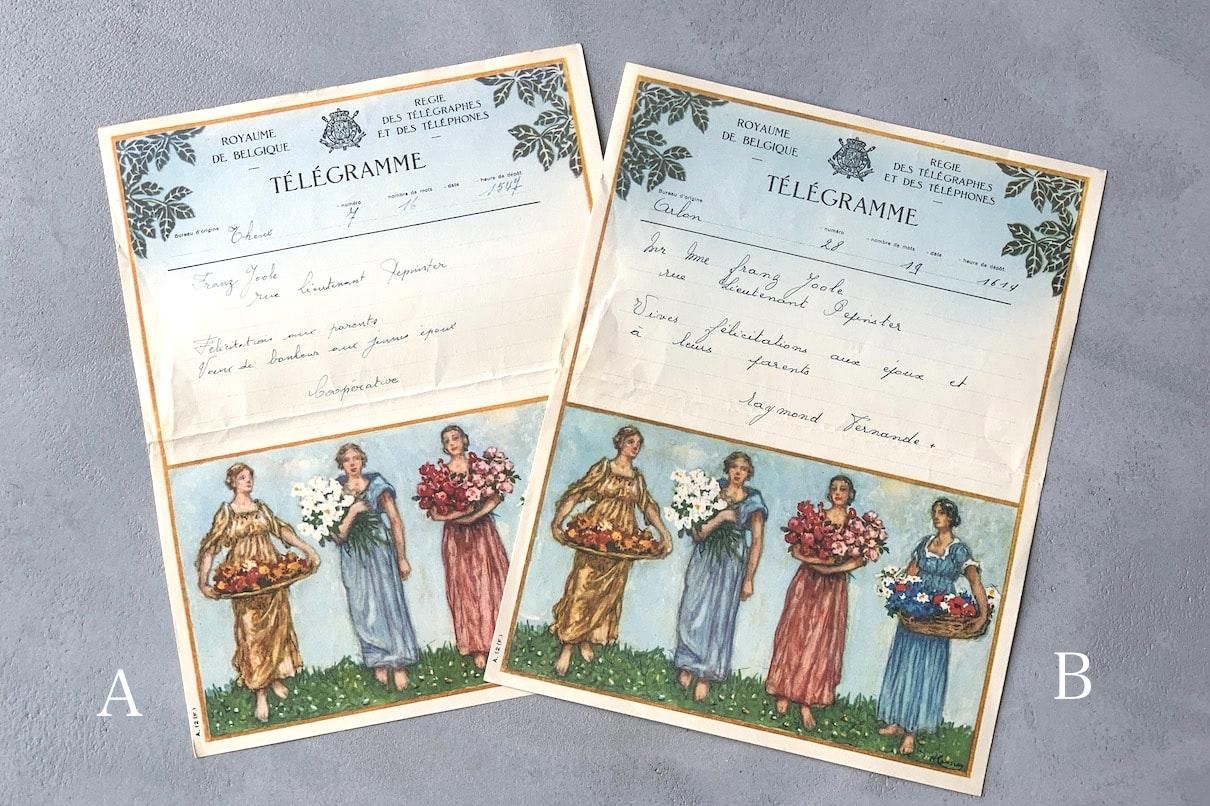 ROYAUME
DE BELGIQUE
REGIE
DES TÉLÉGRAPHES
ET DES TÉLÉPHONES
TÉLÉGRAMME
Bureau d'origine - numéro nombre de mots - date - heure de dépôt
Theux 7 16 1547
Franz Joole
rue lieutenant Pepinster
Félicitations aux parents
Vœux de bonheur aux jeunes époux
Cooperative
A. 12 (F.)
A
ROYAUME
DE BELGIQUE
REGIE
DES TÉLÉGRAPHES
ET DES TÉLÉPHONES
TÉLÉGRAMME
Bureau d'origine - numéro - nombre de mots - date - heure de dépôt.
Arlon 28 19 1614
Mr Mme franz Joole
rue Lieutenant Pepinster
Vives félicitations aux époux et
à leurs parents
Raymond Fernande +
A. 12 (F.)
B